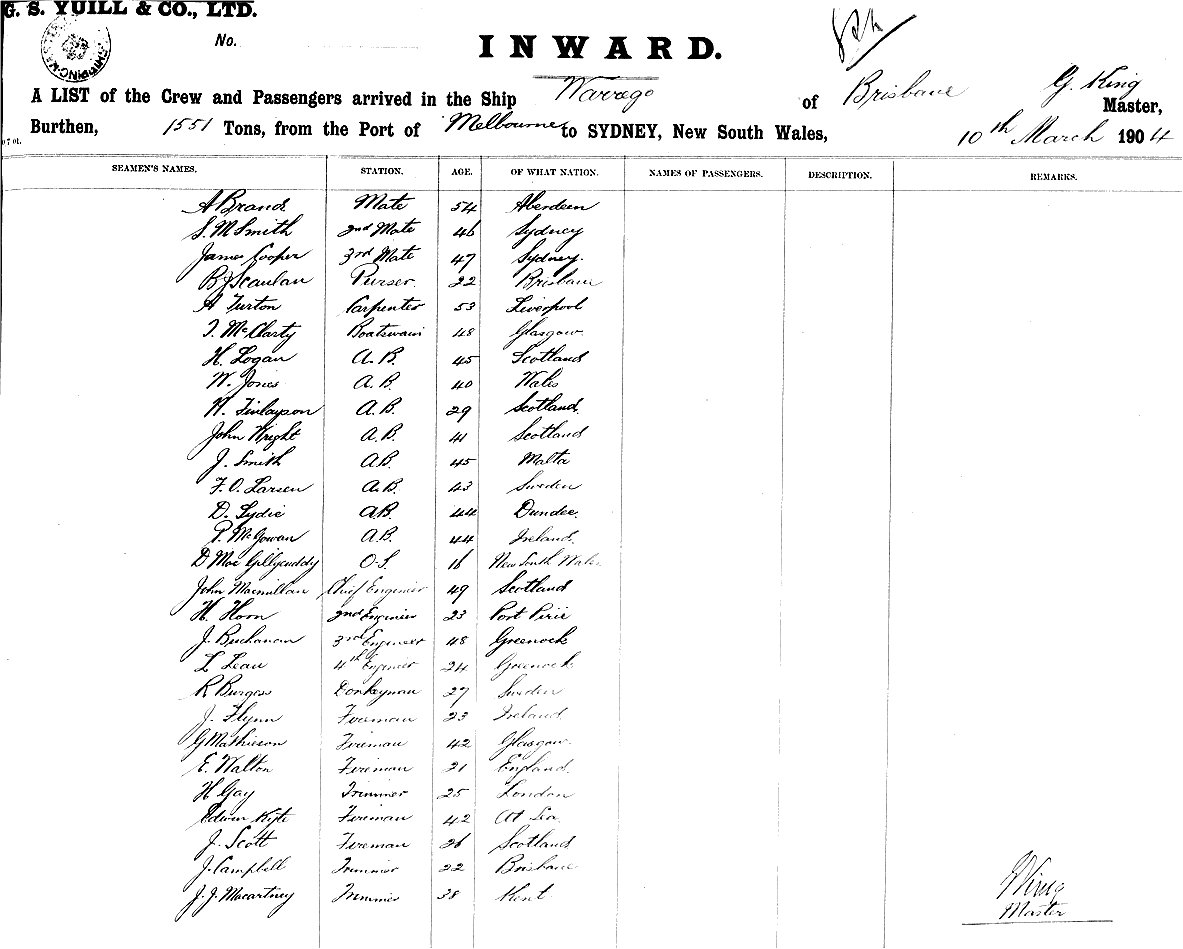 G. S. YUILL & CO., LTD.
No.
INWARD.
A LIST of the Crew and Passengers arrived in the Ship Warrego of Brisbane G. King Master,
Burthen, 1551 Tons, from the Port of Melbourne to SYDNEY, New South Wales, 10th March 1904
SEAMEN'S NAMES. STATION. AGE. OF WHAT NATION. NAMES OF PASSENGERS. DESCRIPTION. REMARKS.
A Brand Mate 54 Aberdeen
S. M Smith 2nd Mate 46 Sydney
James Cooper 3rd Mate 47 Sydney.
B J Scanlan Purser 22 Brisbane
A Turton Carpenter 53 Liverpool
J. McClarty Boatswain 48 Glasgow
H. Logan A.B. 45 Scotland
W. Jones A.B. 40 Wales
W. Finlayson A.B. 29 Scotland.
John Wright A.B. 41 Scotland
J. Smith A.B. 45 Malta
F. O. Larsen A.B. 43 Sweden
D. Lydie A.B. 44 Dundee.
P. McGowan A.B. 44 Ireland.
D Mac Gillycuddy O.S. 16 New South Wales
John Macmillan Chief Engineer 49 Scotland
H. Horn 2nd Engineer 23 Port Pirie
J. Buchanan 3rd Engineer 48 Greenock
L Lean 4th Engineer 24 Greenock
R Burgess Donkeyman 27 Sweden
J. Flynn Fireman 23 Ireland
G Mathieson Fireman 42 Glasgow
E. Walton Fireman 21 England.
H Gay Trimmer 25 London
Edwin Kyte Fireman 42 At Sea
J. Scott Fireman 26 Scotland
J. Campbell Trimmer 22 Brisbane
J. J. Macartney Trimmer 38 Kent
G King
Master